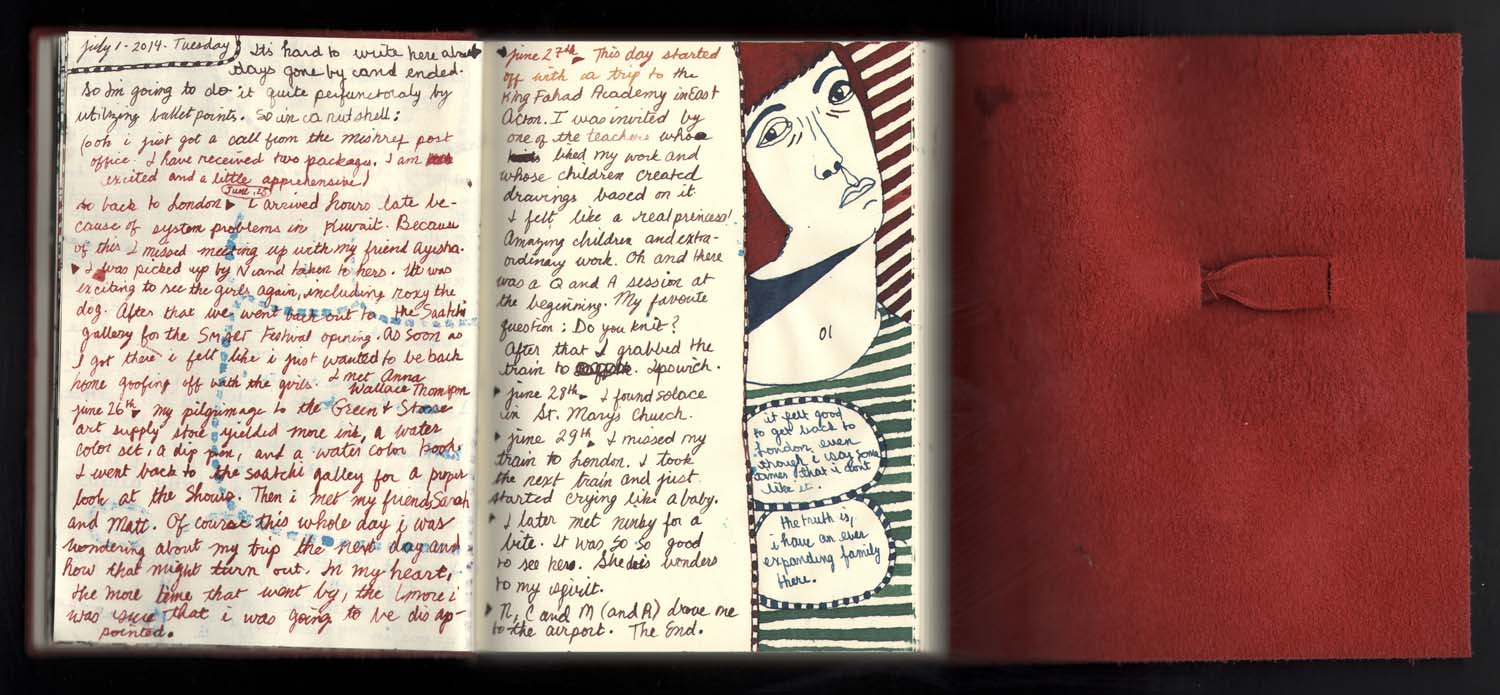 july 1 - 2014 - Tuesday
It's hard to write here about
days gone by and ended.
so I'm going to do it quite perfunctoraly by
utilizing bullet points. So in a nutshell:
(ooh i just got a call from the mishref post
office. I have received two packages. I am
excited and a little apprehensive!
June 25
so back to London ▸ I arrived hours late be-
cause of system problems in Kuwait. Because
of this I missed meeting up with my friend Ayisha.
▸ I was picked up by N and taken to hers. It was
exciting to see the girls again, including roxy the
dog. After that we went back out to the Saatchi
gallery for the Smart Festival opening. As soon as
I got there i felt like i just wanted to be back
home goofing off with the girls. I met Anna
Wallace Thompson
june 26th ▸ my pilgrimage to the Green & Stone
art supply store yielded more ink, a water
color set, a dip pen, and a water color book.
I went back to the saatchi gallery for a proper
look at the shows. Then i met my friends Sarah
and Matt. Of course this whole day i was
wondering about my trip the next day and
how that might turn out. In my heart,
the more time that went by, the more i
was sure that i was going to be disap-
pointed.
▸ june 27th ▸ This day started
off with a trip to the
King Fahad Academy in East
Acton. I was invited by
one of the teachers who
liked my work and
whose children created
drawings based on it.
I felt like a real princess!
Amazing children and extra-
ordinary work. Oh and there
was a Q and A session at
the beginning. My favorite
question: Do you knit?
After that I grabbed the
train to Ipswich.
▸ june 28th ▸ I found solace
in St. Marys Church.
▸ june 29th ▸ I missed my
train to London. I took
the next train and just
started crying like a baby.
▸ I later met for a
bite. It was so so good
to see her. She does wonders
to my spirit.
▸ N, C and M (and R) drove me
to the airport. The End.
01
it felt good
to get back to
London even
though i say some
times that i dont
like it.
the truth is,
i have an ever
expanding family
there.